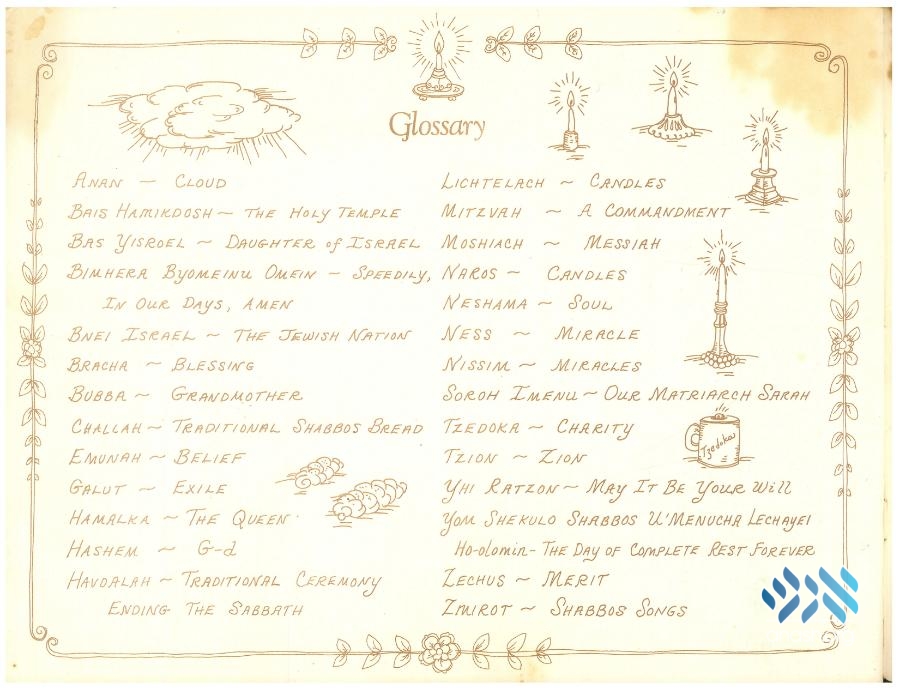 Glossary
Anan ~ Cloud
Bais Hamikdosh ~ The Holy Temple
Bas Yisroel ~ Daughter of Israel
Bimhera Byomeinu Omein ~ Speedily,
In Our Days, Amen
Bnei Israel ~ The Jewish Nation
Bracha ~ Blessing
Bubba ~ Grandmother
Challah ~ Traditional Shabbos Bread
Emunah ~ Belief
Galut ~ Exile
Hamalka ~ The Queen
Hashem ~ G-d
Havdalah ~ Traditional Ceremony
Ending The Sabbath
Lichtelach ~ Candles
Mitzvah ~ A Commandment
Moshiach ~ Messiah
Naros ~ Candles
Neshama ~ Soul
Ness ~ Miracle
Nissim ~ Miracles
Soroh Imenu ~ Our Matriarch Sarah
Tzedoka ~ Charity
Tzedoka
Tzion ~ Zion
Yhi Ratzon ~ May It Be Your Will
Yom Shekulo Shabbos U'Menucha Lechayei
Ho-olomin - The Day of Complete Rest Forever
Zechus ~ Merit
Zmirot ~ Shabbos Songs